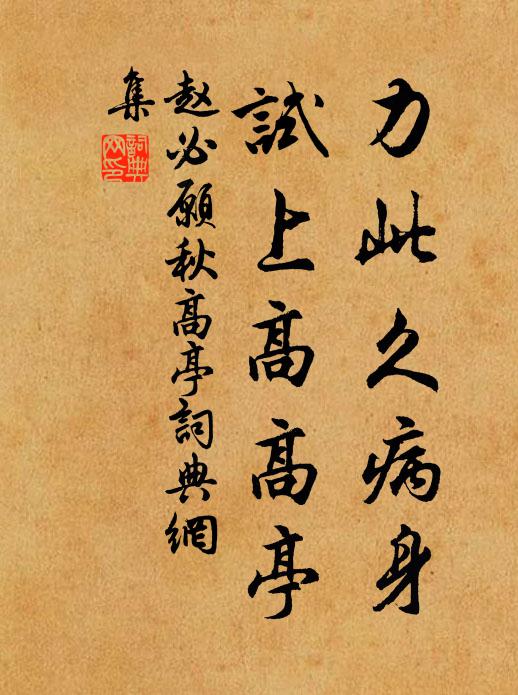 力此久病身
試上高高亭
赵必願秋高亭詞典網
集
詞典
网印